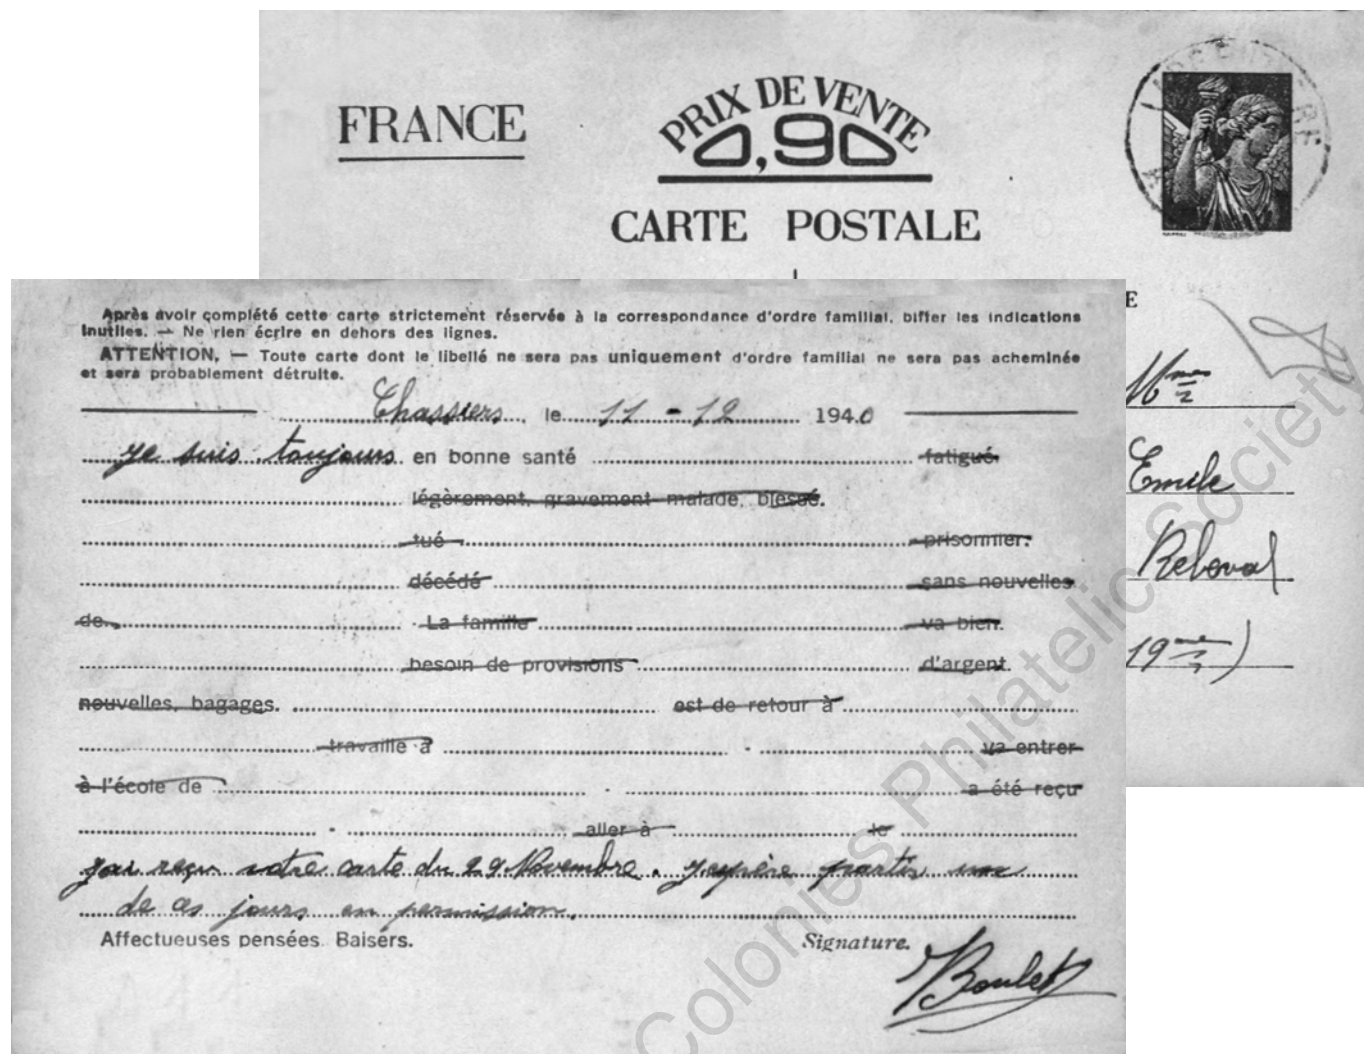 FRANCE
PRIX DE VENTE
0,90
CARTE POSTALE
E
Mme
Emile
Reboval
19me)
Après avoir complété cette carte strictement réservée à la correspondance d'ordre familial, biffer les indications
inutiles. — Ne rien écrire en dehors des lignes.
ATTENTION. — Toute carte dont le libellé ne sera pas uniquement d'ordre familial ne sera pas acheminée
et sera probablement détruite.
Chassiers, le 11 - 12 1940
je suis toujours en bonne santé fatigué.
légèrement, gravement malade, blessé.
tué prisonnier.
décédé sans nouvelles
de La famille va bien.
besoin de provisions d'argent.
nouvelles, bagages. est de retour à
travaille à va entrer
à l'école de a été reçu
aller à le
j'ai reçu votre carte du 29 Novembre. j'espère partir un
de ces jours en permission.
Affectueuses pensées. Baisers. Signature.
Boulet
Colonies Philatelic Society